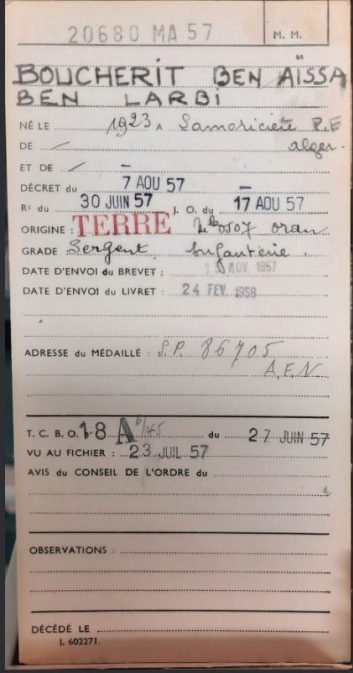 20680 MA 57 M. M.
BOUCHERIT BEN AÏSSA
BEN LARBI
NÉ LE 1923 A Lamoricière P.E
DE / alger
ET DE / –
DÉCRET du 7 AOU 57 –
Rt du 30 JUIN 57 J. O. du 17 AOU 57
ORIGINE : TERRE Mle 0507 oran
GRADE Sergent Infanterie.
DATE D'ENVOI du BREVET : NOV. 1957
DATE D'ENVOI du LIVRET : 24 FEV. 1958
ADRESSE du MÉDAILLÉ : S.P. 86705
A.F.N
T. C. B. O. 18 A du 27 JUIN 57
VU AU FICHIER : 23 JUIL 57
AVIS du CONSEIL DE L'ORDRE du
OBSERVATIONS :
DÉCÉDÉ LE
J. 602271.